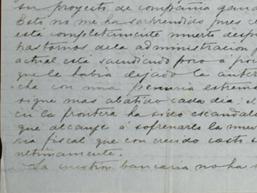 su proyecto de compañia gana
Esto no me ha sorprendido pues
esta completamente muerto desp
trastornos de la administracion
actual está sacudiendo poco a poco
que le habia dejado la anter
cha con una penuria estrema
sigue mas abatido cada dia. el
en la frontera ha sido escandalo
que alcanze á sofrenarlo la nue
va fiscal que con crecido costo s
netinamente.
La cuestion bancaria no ha s